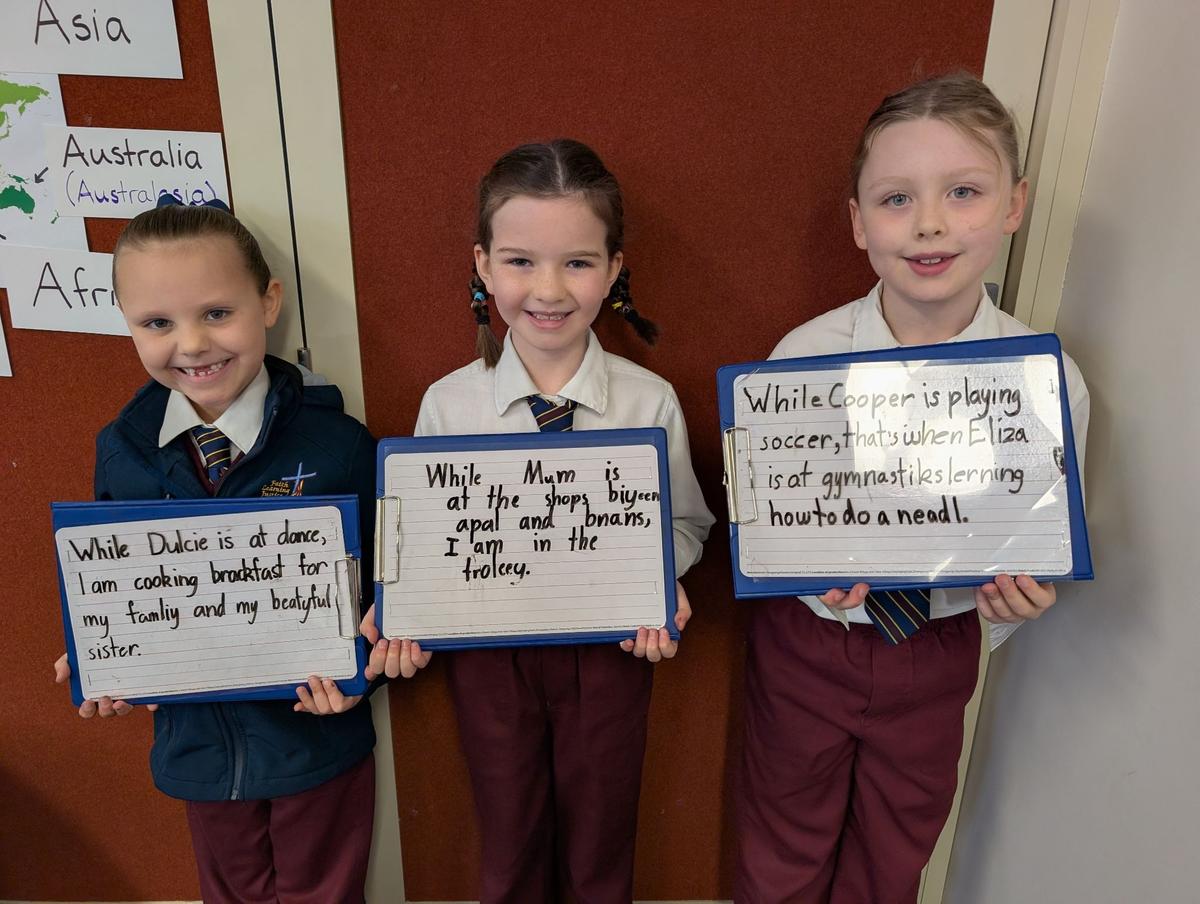 Asia
Australia
(Australasia)
Afri
Faith
Learning
While Dulcie is at dance,
I am cooking brackfast for
my famliy and my beatyful
sister.
While Mum is
at the shops biyeen
apal and bnans,
I am in the
troleey.
While Cooper is playing
soccer, that's when Eliza
is at gymnastiks lerning
how to do a neadl.